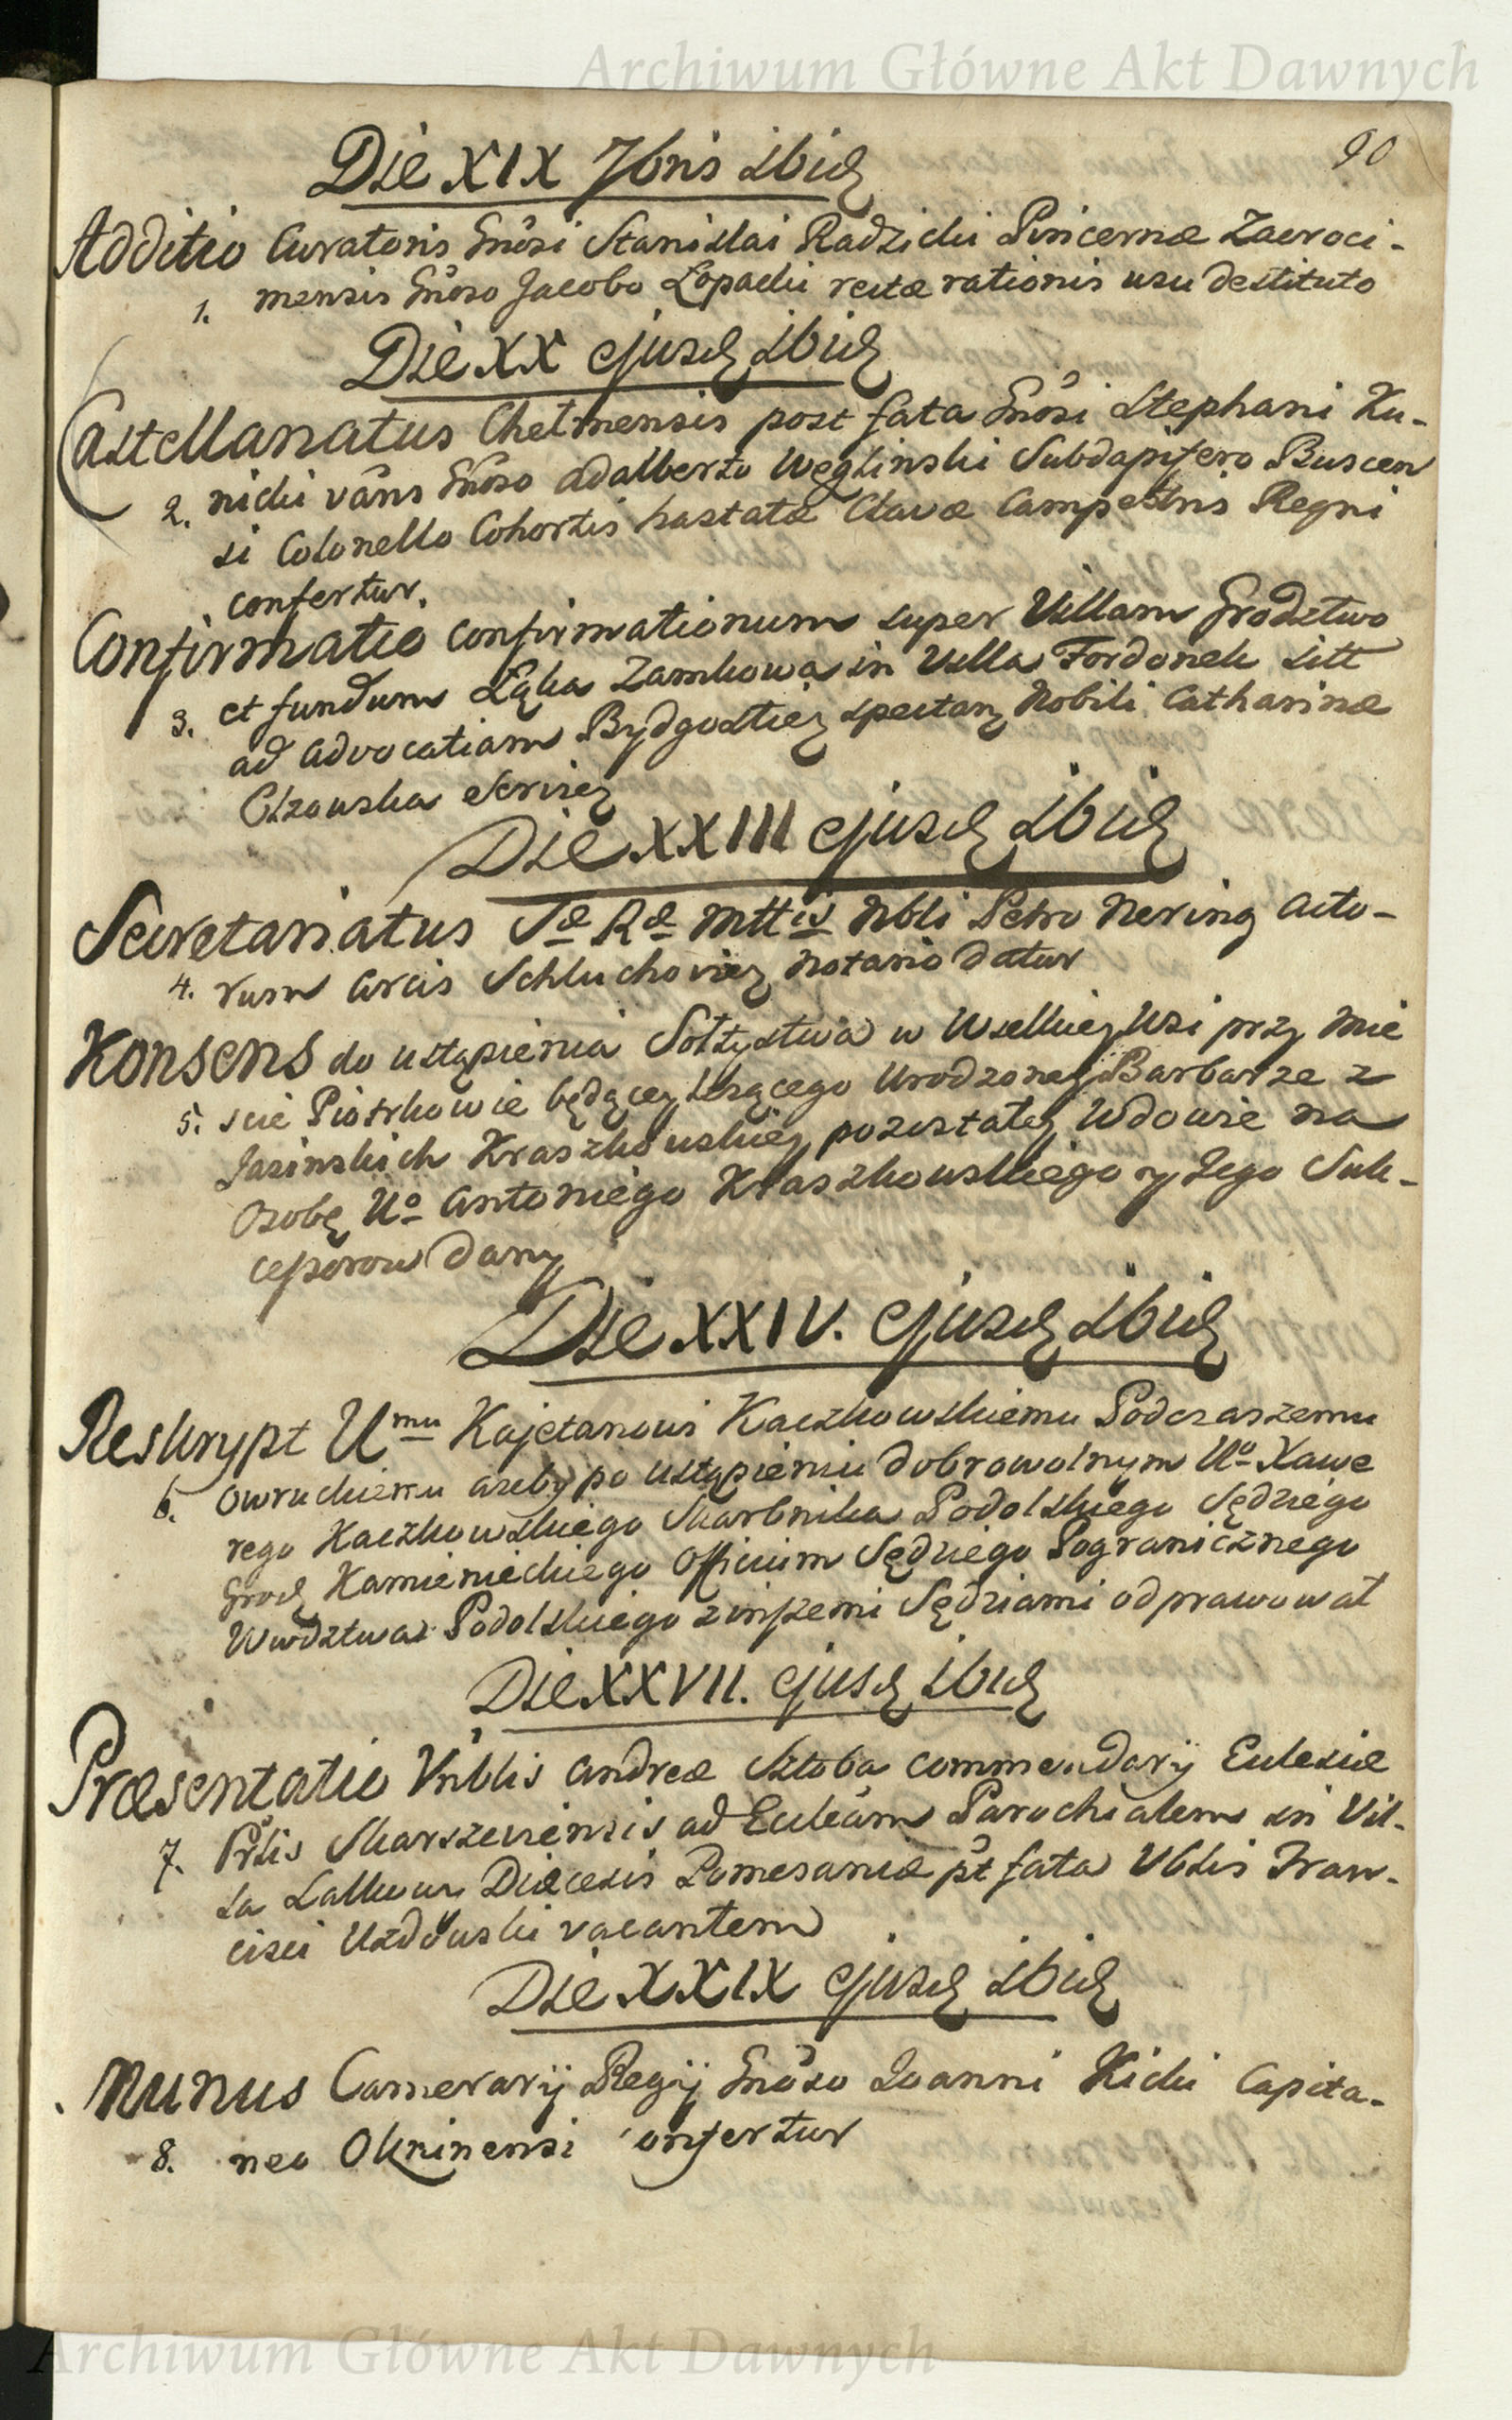 Archiwum Główne Akt Dawnych
90
Die XIX 7bris ibid
Additio Curatoris Gnosi Stanislai Radzicki Pincernæ Zacroci-
1. mensis Gnoso Jacobo Łopacki rectæ rationis usu destituto
Die XX ejusd ibid
Castellanatus Chelmensis post fata Gnosi Stephani Ku-
2. nicki vans Gnoso Adalberto Węglinski Subdapifero Buscen
si Colonello Cohortis hastatæ Clavæ Campestris Regni
confertur.
Confirmatio confirmationum super Villam Grodztwo
3. et fundum Łąka Zamkowa in Villa Fordonek sitt
ad Advocatiam Bydgostien spectan Nobili Catharinæ
Olzowska servien
Die XXIII ejusd ibid
Secretariatus Sæ Ræ Mttis Nbli Petro Nering Acto-
4. rum Arcis Schluchovien Notario datur
Konsens do ustąpienia Sołtystwa w Wielkiey Wsi przy Mie
5. scie Piotrkowie będącey leżącego Urodzoney Barbarze z
Jasinskich Kraszkowskiey pozostałey Wdowie na
Osobę Uo Antoniego Kraszkowskiego y Jego Suk-
cessorow dany
Die XXIV. ejusd ibid
Reskrypt Umu Kajetanowi Kaczkowskiemu Podczaszemu
6. Owruckiemu ażeby po ustąpieniu dobrowolnym Uo Xawe
rego Kaczkowskiego Skarbnika Podolskiego Sędziego
Grod Kamienieckiego Officium Sędziego Pogranicznego
Wwdztwa Podolskiego z inszemi Sędziami odprawował
Die XXVII. ejusd ibid
Præsentatio Vnblis Andreæ Sztoba Commendarij Ecclesiæ
7. Prlis Skarszeviensis ad Eccleam Parochialem in Vil-
la Lalkowy Diæcesis Pomesaniæ pt fata Vblis Fran-
cisci Uzdowski vacantem
Die XXIX ejusd ibid
Munus Camerarij Regij Gnoso Joanni Kicki Capita-
8. neo Okninensi confertur
Archiwum Główne Akt Dawnych